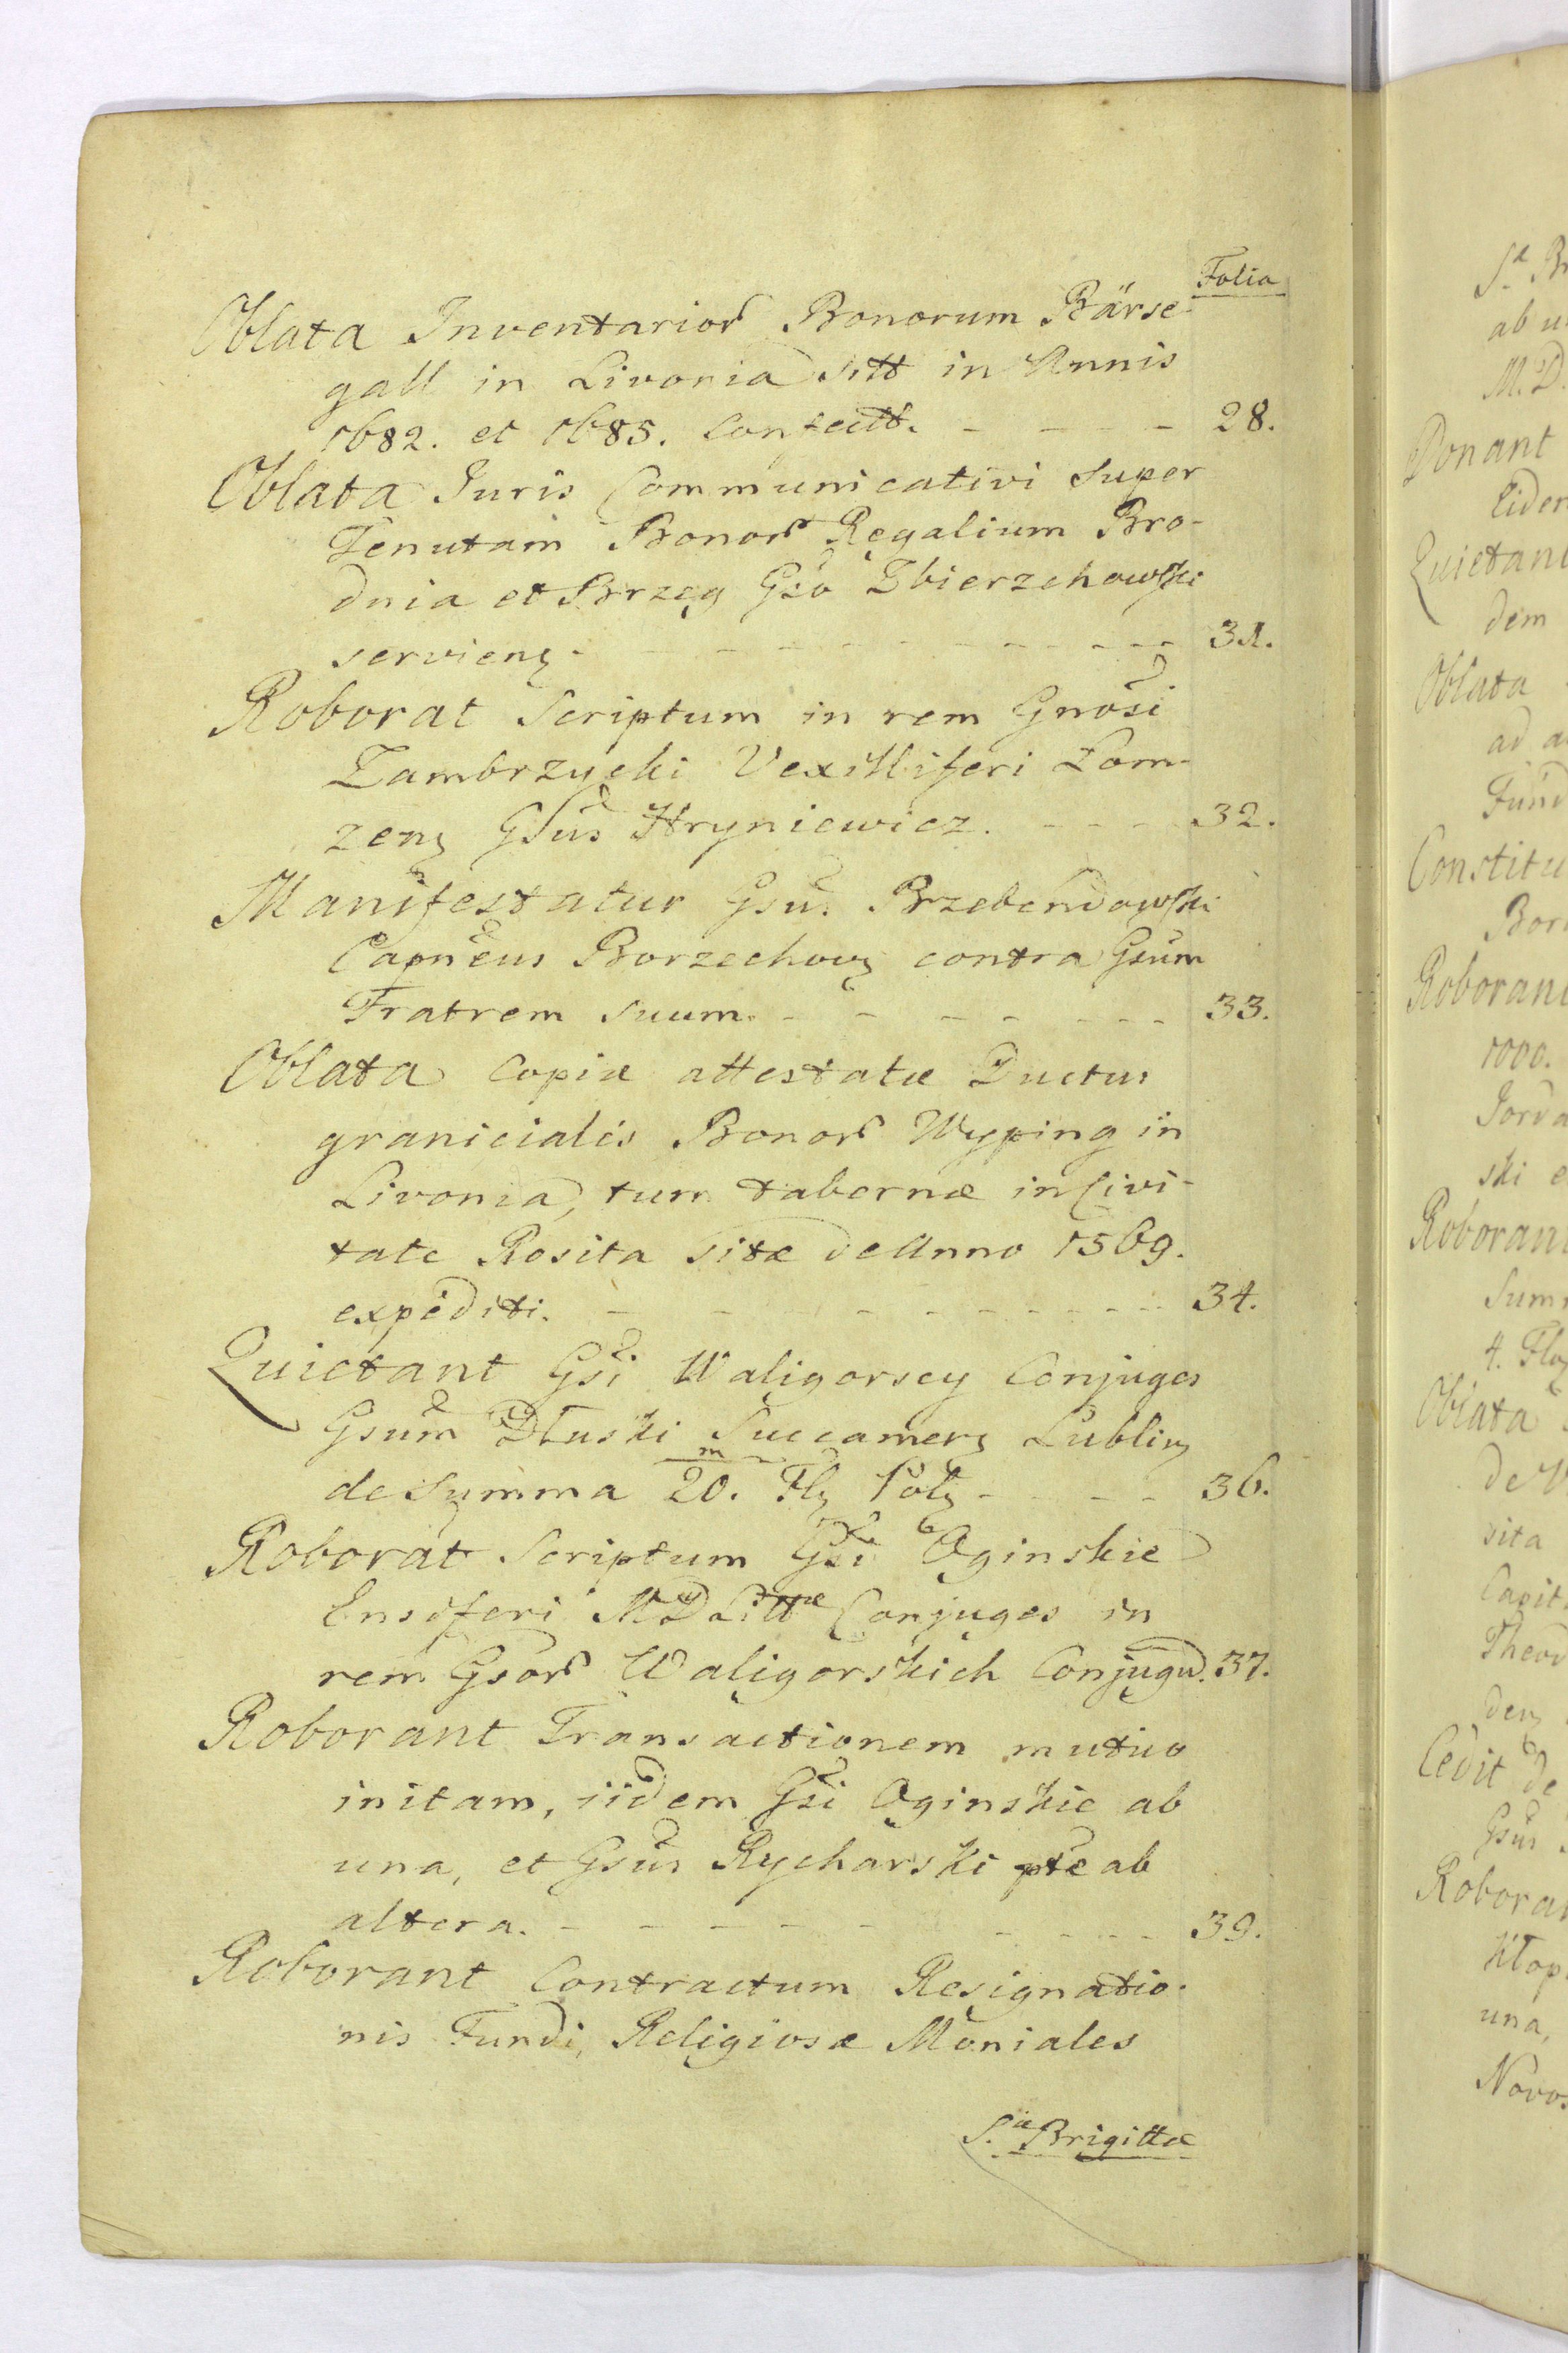 Folia
Oblata Inventarior Bonorum Bärse-
gall in Livonia sitt in Annis
1682. et 1685. confectt. - - - - 28.
Oblata Juris Communicativi super
Tenutam Bonor Regalium Bro-
dnia et Brzeg Gso Zbierzchowski
servieng - - - - - - - - - 31.
Roborat Scriptum in rem Gnosi
Zambrzycki Vexilliferi Lom-
zeng Gsus Hryniewicz. - - - 32.
Manifestatur Gsus Przebendowski
Capneus Borzechovg contra Gsum
Fratrem suum. - - - - - - - 33.
Oblata Copiæ attestatæ Ductus
granicialis Bonor Wyping in
Livonia, tum tabernæ in Civi-
tate Rosita sitæ de Anno 1569.
expediti. - - - - - - - - - - 34.
Quietant Gsi Waligorscy Conjuges
Gsum Dłuski Succamerg Lubling
de Summa 20.m Flg Polg - - - - 36.
Roborat Scriptum Gsi Oginskie
Ensiferi MDLittæ Conjuges in
rem Gsor Waligorskich Conjugu. 37.
Roborant Transactionem mutuo
initam, iidem Gsi Oginskie ab
una, et Gsus Rycharski pte ab
altera. - - - - - - - - - 39.
Roborant Contractum Resignatio-
nis Fundi, Religiosæ Moniales
S.æ Brigittæ
S.æ Br
ab u
M.D.
Donant
Eider
Quietant
dem
Oblata
ad a
Fund
Constitu
Bor
Roborant
1000.
Jorda
ski e
Roborant
Summ
4. Flg
Oblata
de V
sita
Capit
Theod
deng
Cedit de
Gsus
Roboran
Kłop
una,
Novo